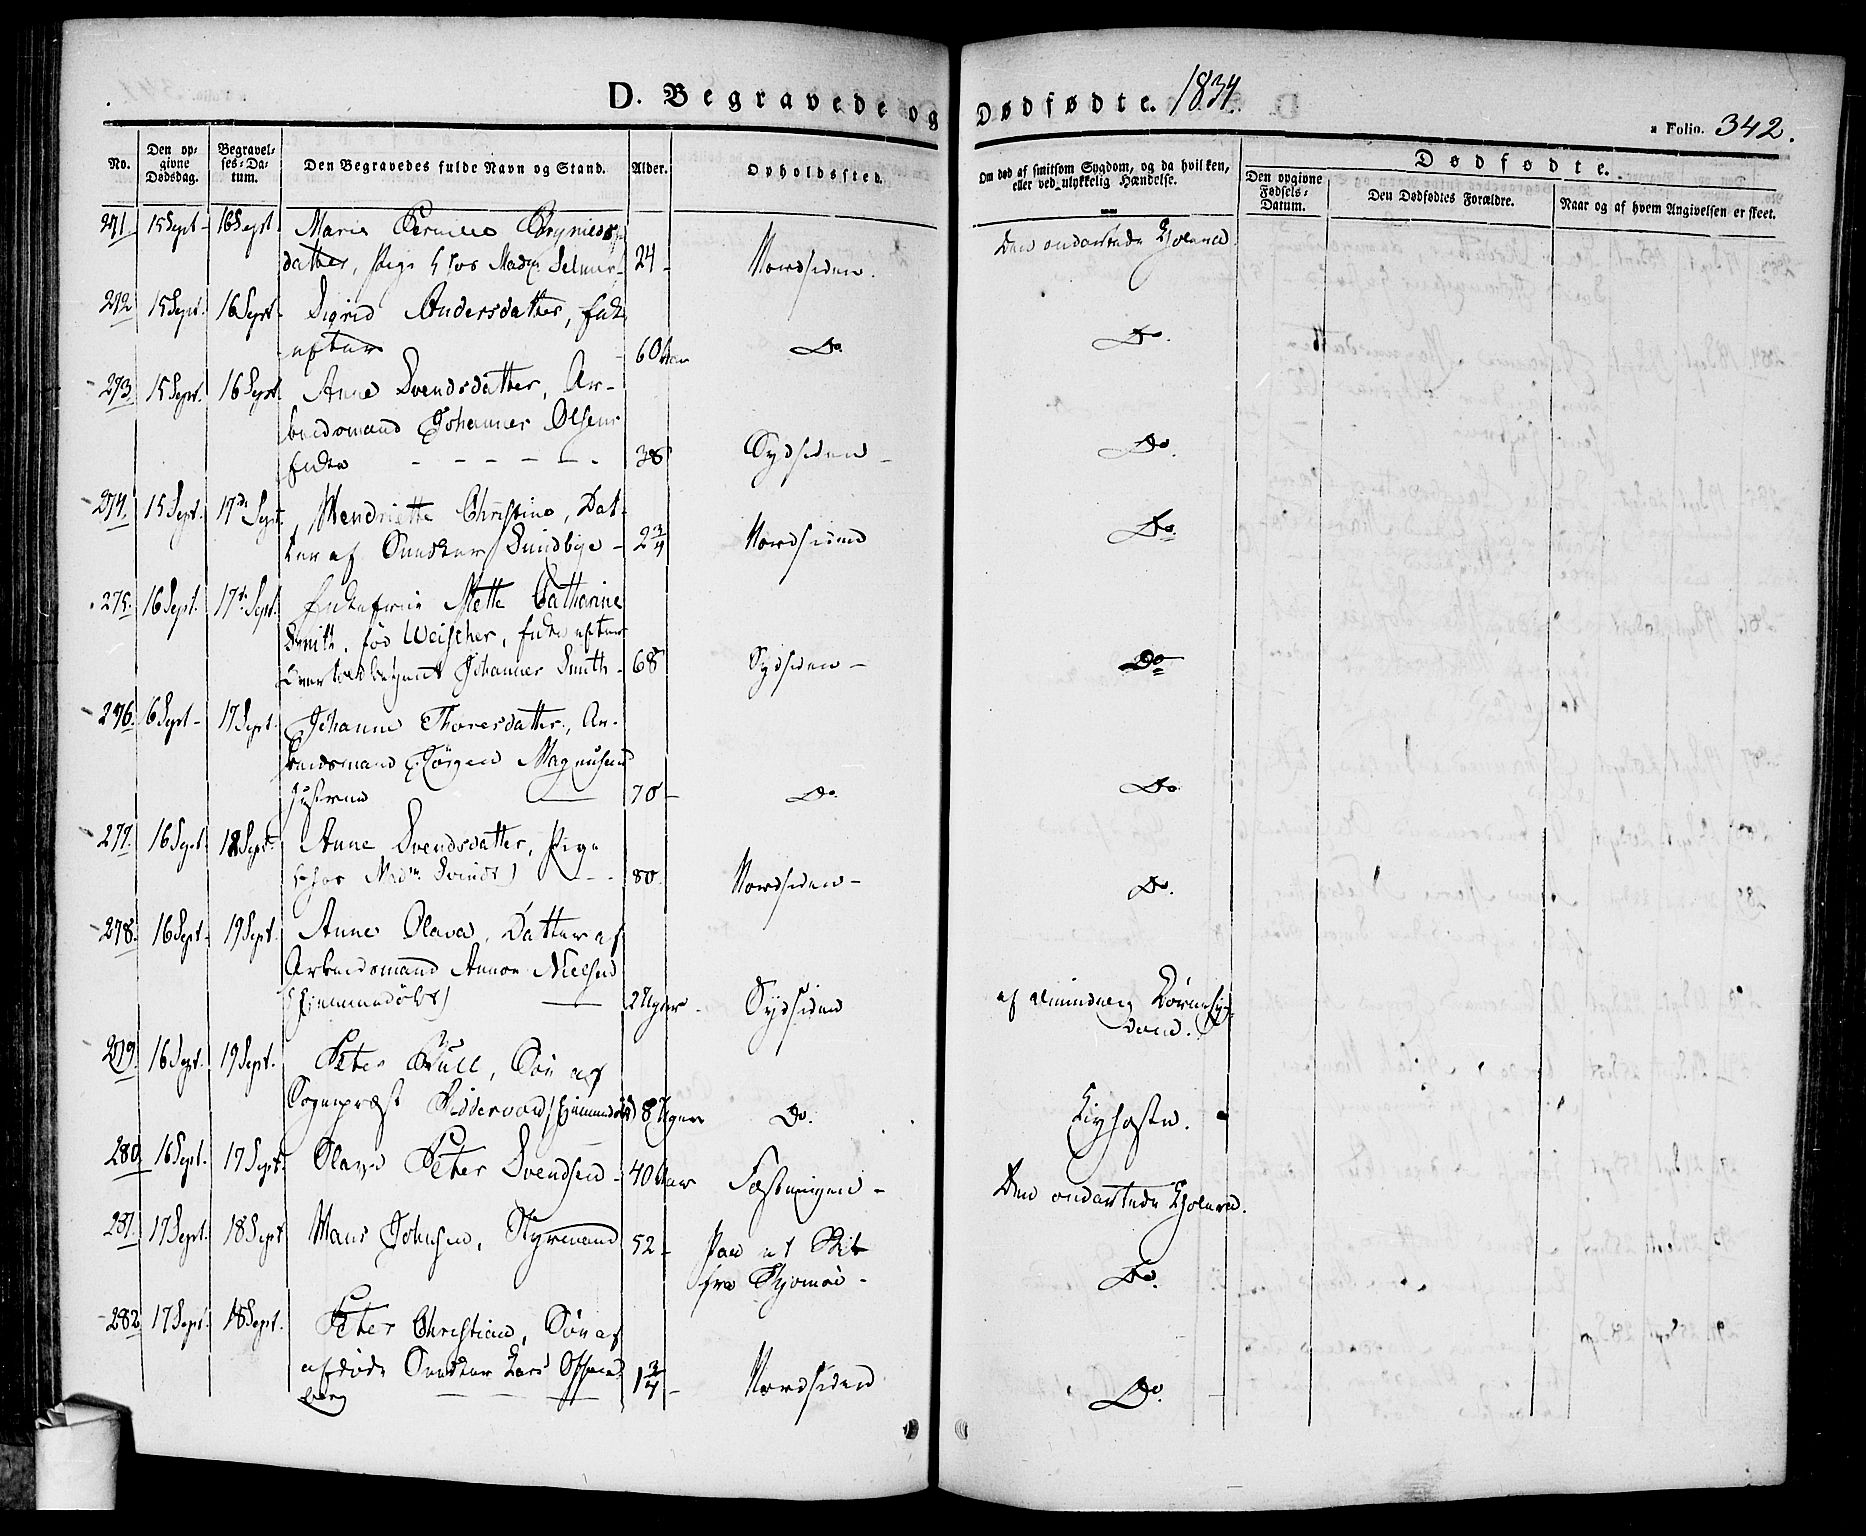 D. Begravede og Dødfødte. 1834.
" Folio. 342.
No.
Den opgivne Dødsdag.
Begravelses-Datum.
Den Begravedes fulde Navn og Stand.
Alder.
Opholdssted.
Om død af smitsom Sygdom, og da hvilken,
eller ved ulykkelig Hændelse.
Dødfødte.
Den opgivne Fødsels-Datum.
Den Dødfødtes Forældre.
Naar og af hvem Angivelsen er skeet.
271. 15 Sept. 16 Sept. Maria
datter, Pige hos Madm Selmer 24 Nordsiden. Den ondartede Cholera.
272 15 Sept. 16 Sept. Sigrid Andersdatter, Enke
60 Aar Do. Do.
273. 15 Sept. 16 Sept. Anne Svendsdatter, Ar-
beidsmand Johannes Olsens
Enke 38 Sydsiden Do.
274. 15 Sept. 17de Sept. Hendriette Christine, Dat-
ter af Snedker Sundbye 2 3/4 Nordsiden Do.
275. 16 Sept. 17de Sept. Enkefrue Mette Catharine
Smith, fød Weischer, Enke efter
Johannes Smith 68 Sydsiden Do
276. 6 Sept. 17 Sept. Johanne Thoresdatter, Ar-
beidsmand Jørgen Magnusens
Hustrue 70 Do. Do
277. 16 Sept. 18 Sept. Anne Svendsdatter, Pige
hos Madm 80. Nordsiden Do.
278. 16 Sept. 19 Sept. Anne Olava, Datter af
Arbeidsmand Nielsen
(Hjemmedøbt) 2 Uger Sydsiden af almindelig Børnesyg-
dom.
279. 16 Sept. 19 Sept. Peter Bull, Søn af
Sognepræst Riddervold (Hjemmedøbt) 8 Uger Do. Kighoste.
280. 16 Sept. 17 Sept. Slave Peter Svendsen 40 Aar Fæstningen Den ondartede Cholera.
281. 17 Sept. 18 Sept Hans Johnsen, Styrmand 52 Paa et Skib
fra Tjømøe Do.
282 17 Sept. 18 Sept. Peter Christian, Søn af
afdøde Snedker Lars
berg 1 3/4 Nordsiden Do.